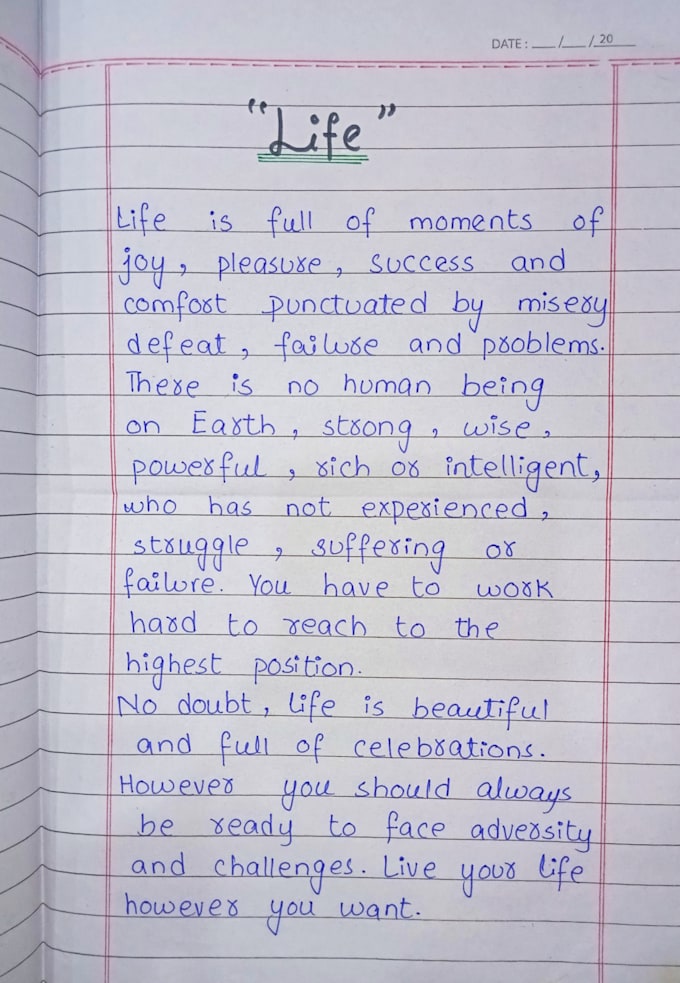 DATE: __/__/20__
"Life"
Life is full of moments of
joy, pleasure, success and
comfort punctuated by misery
defeat, failure and problems.
There is no human being
on Earth, strong, wise,
powerful, rich or intelligent,
who has not experienced,
struggle, suffering or
failure. You have to work
hard to reach to the
highest position.
No doubt, life is beautiful
and full of celebrations.
However you should always
be ready to face adversity
and challenges. Live your life
however you want.